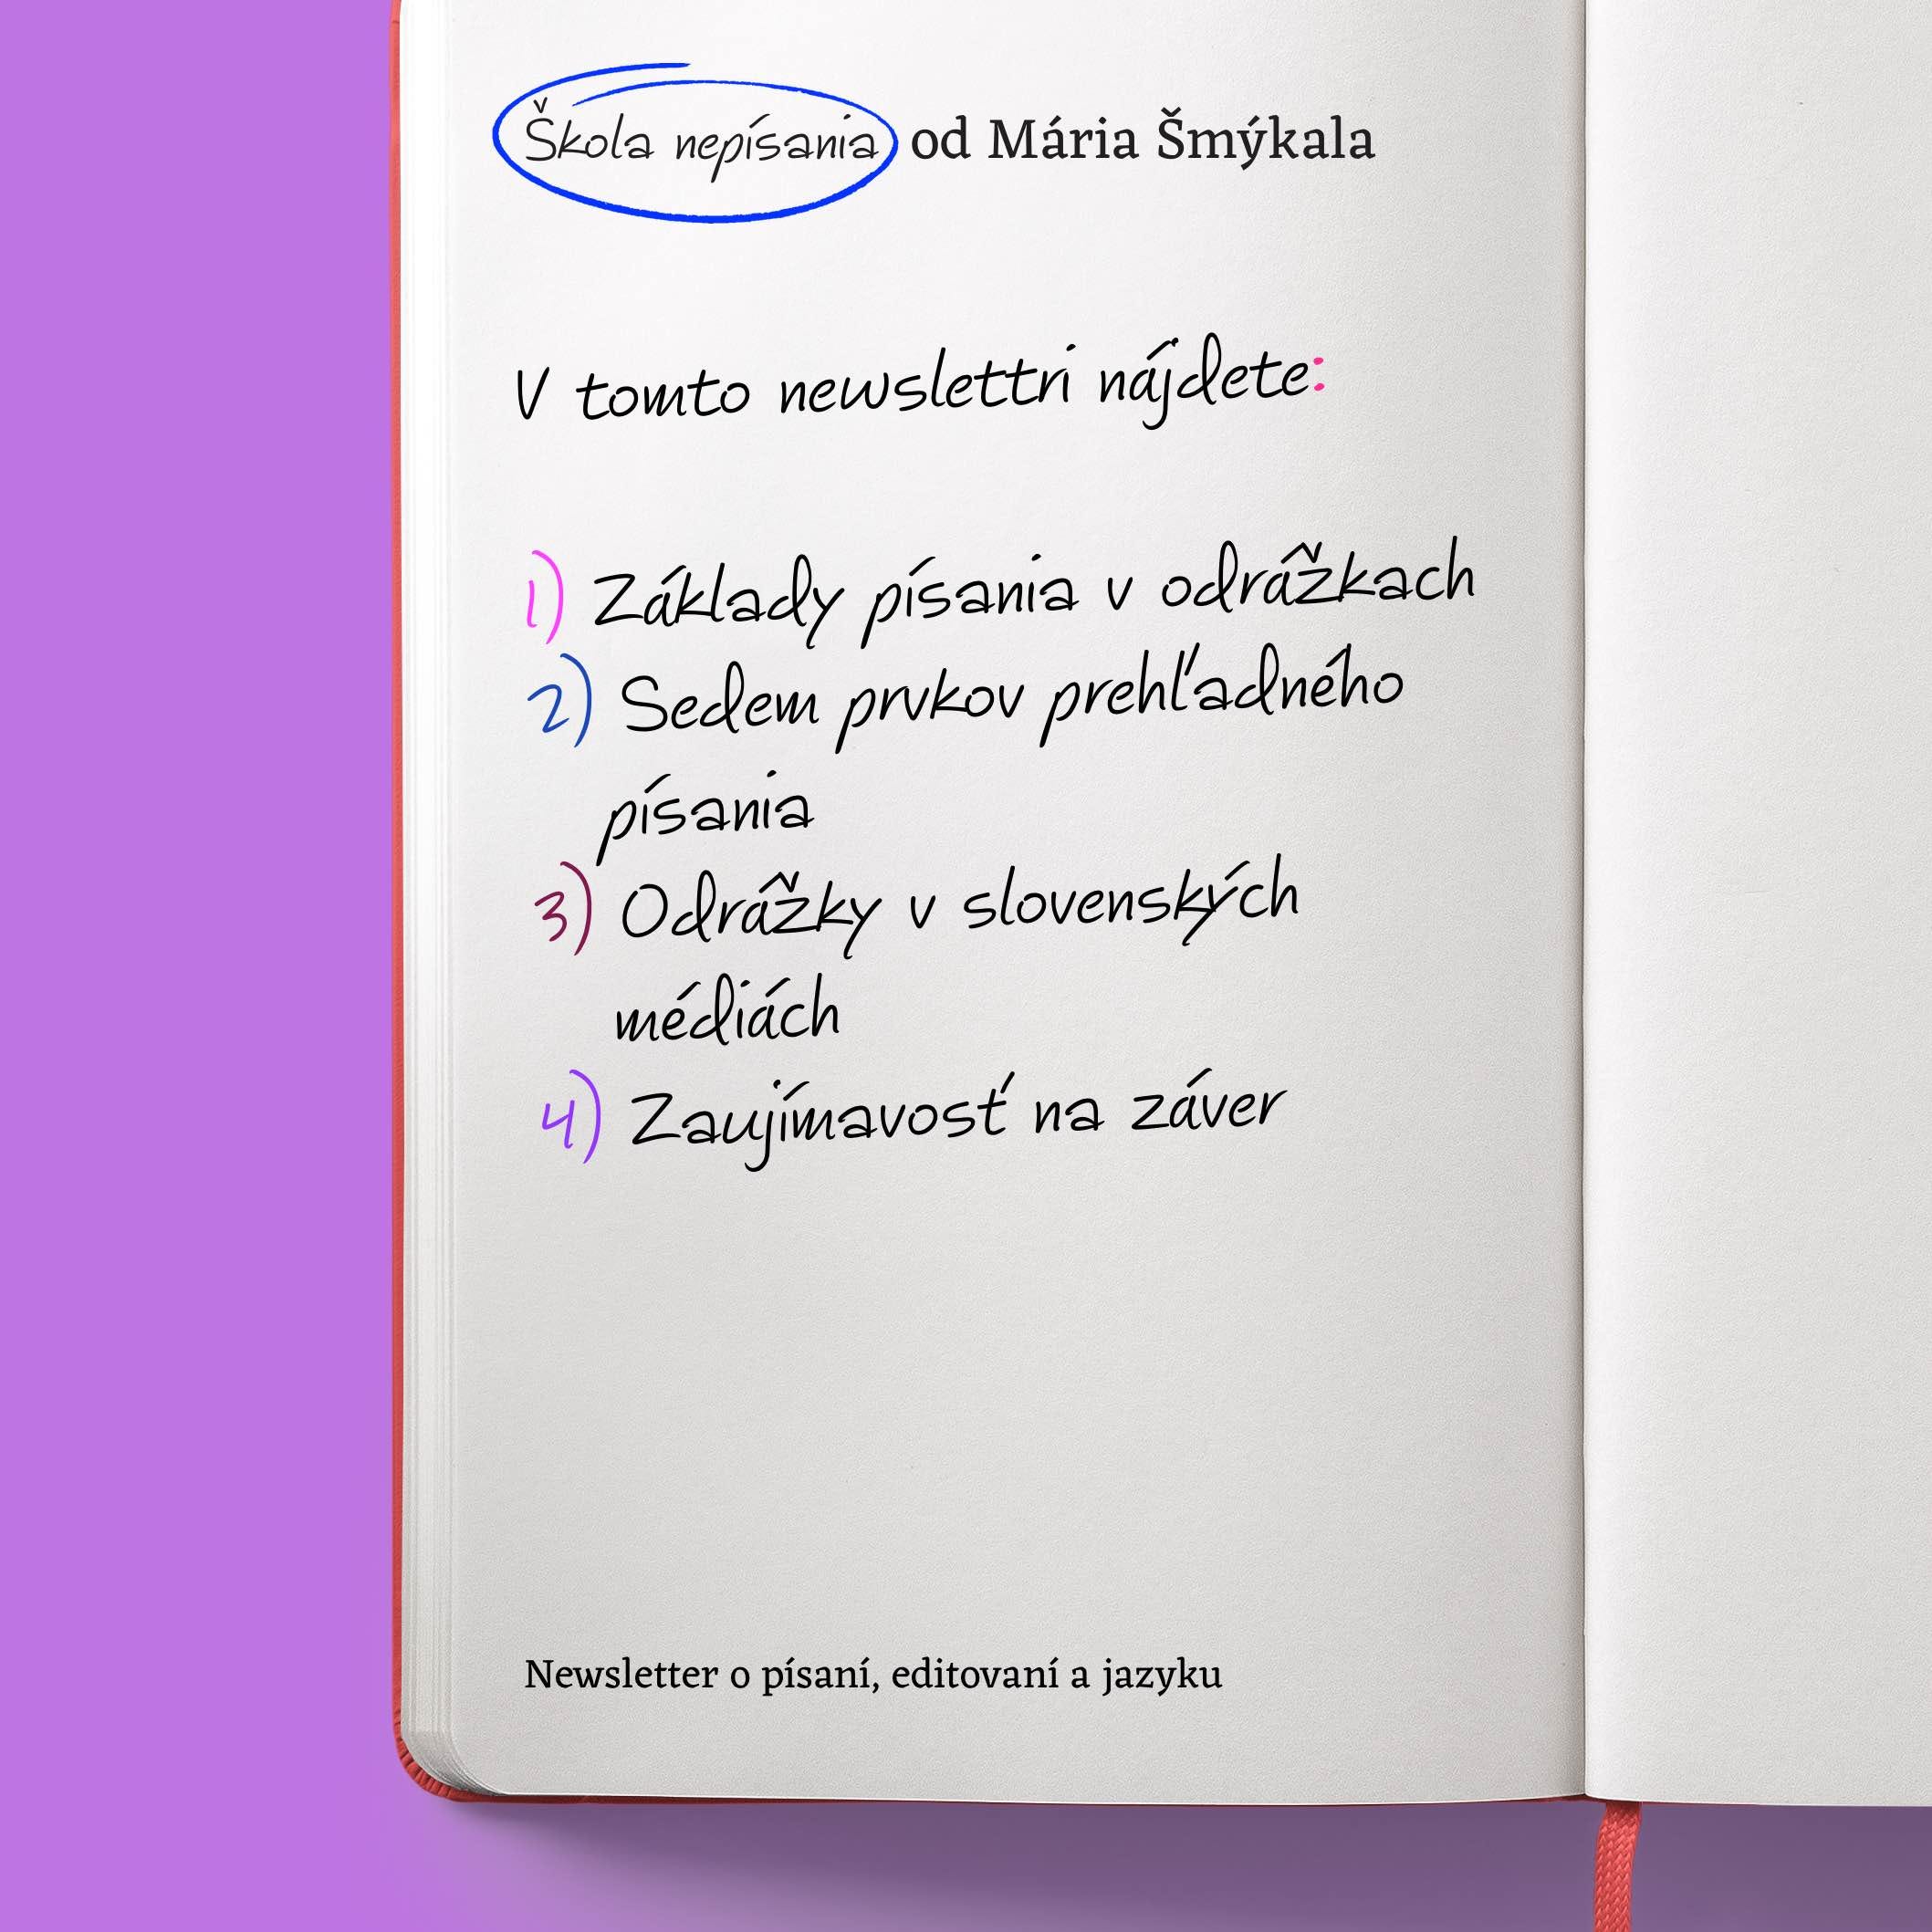 Škola nepísania od Mária Šmýkala
V tomto newslettri nájdete:
1) Základy písania v odrážkach
2) Sedem prvkov prehľadného
písania
3) Odrážky v slovenských
médiách
4) Zaujímavosť na záver
Newsletter o písaní, editovaní a jazyku